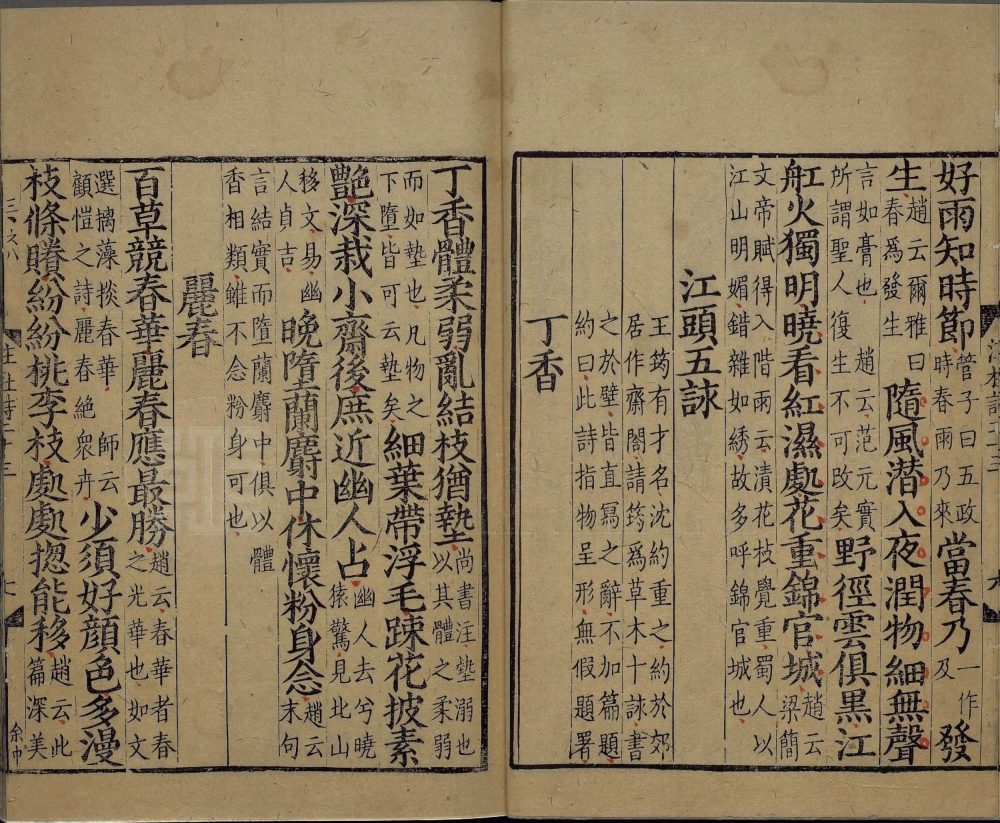 好雨知時節管子曰五政時春雨乃來當春乃一作及發
生趙云爾雅曰春爲發生隨風潜入夜潤物細無聲
言如膏也趙云范元實所謂聖人復生不可改矣野徑雲俱黒江
舡火獨明曉看紅濕處花重錦官城趙云梁簡
文帝賦得入階雨云漬花枝覺重蜀人以江山明媚錯雜如綉故多呼錦官城也
江頭五詠
王筠有才名沈約重之約於郊居作齋閤請筠爲草木十詠書
之於壁皆直寫之辭不加篇題約曰此詩指物呈形無假題署
丁香
丁香體柔弱亂結枝猶墊尚書注墊溺也以其體之柔弱
而如墊也凡物之下墮皆可云墊矣細葉帶浮毛踈花披素
艷深栽小齋後庶近幽人占幽人去兮曉猿驚見北山
移文易幽人貞吉晚隋蘭麝中休懷粉身念趙云末句
言結實而墮蘭麝中俱以體香相類雖不念粉身可也
麗春
百草競春華麗春應最勝趙云春華者春之光華也如文
選摛藻掞春華師云顧愷之詩麗春絶衆卉少須好顔色多漫
枝條賸紛紛桃李枝處處揔能移趙云此篇深美
余中